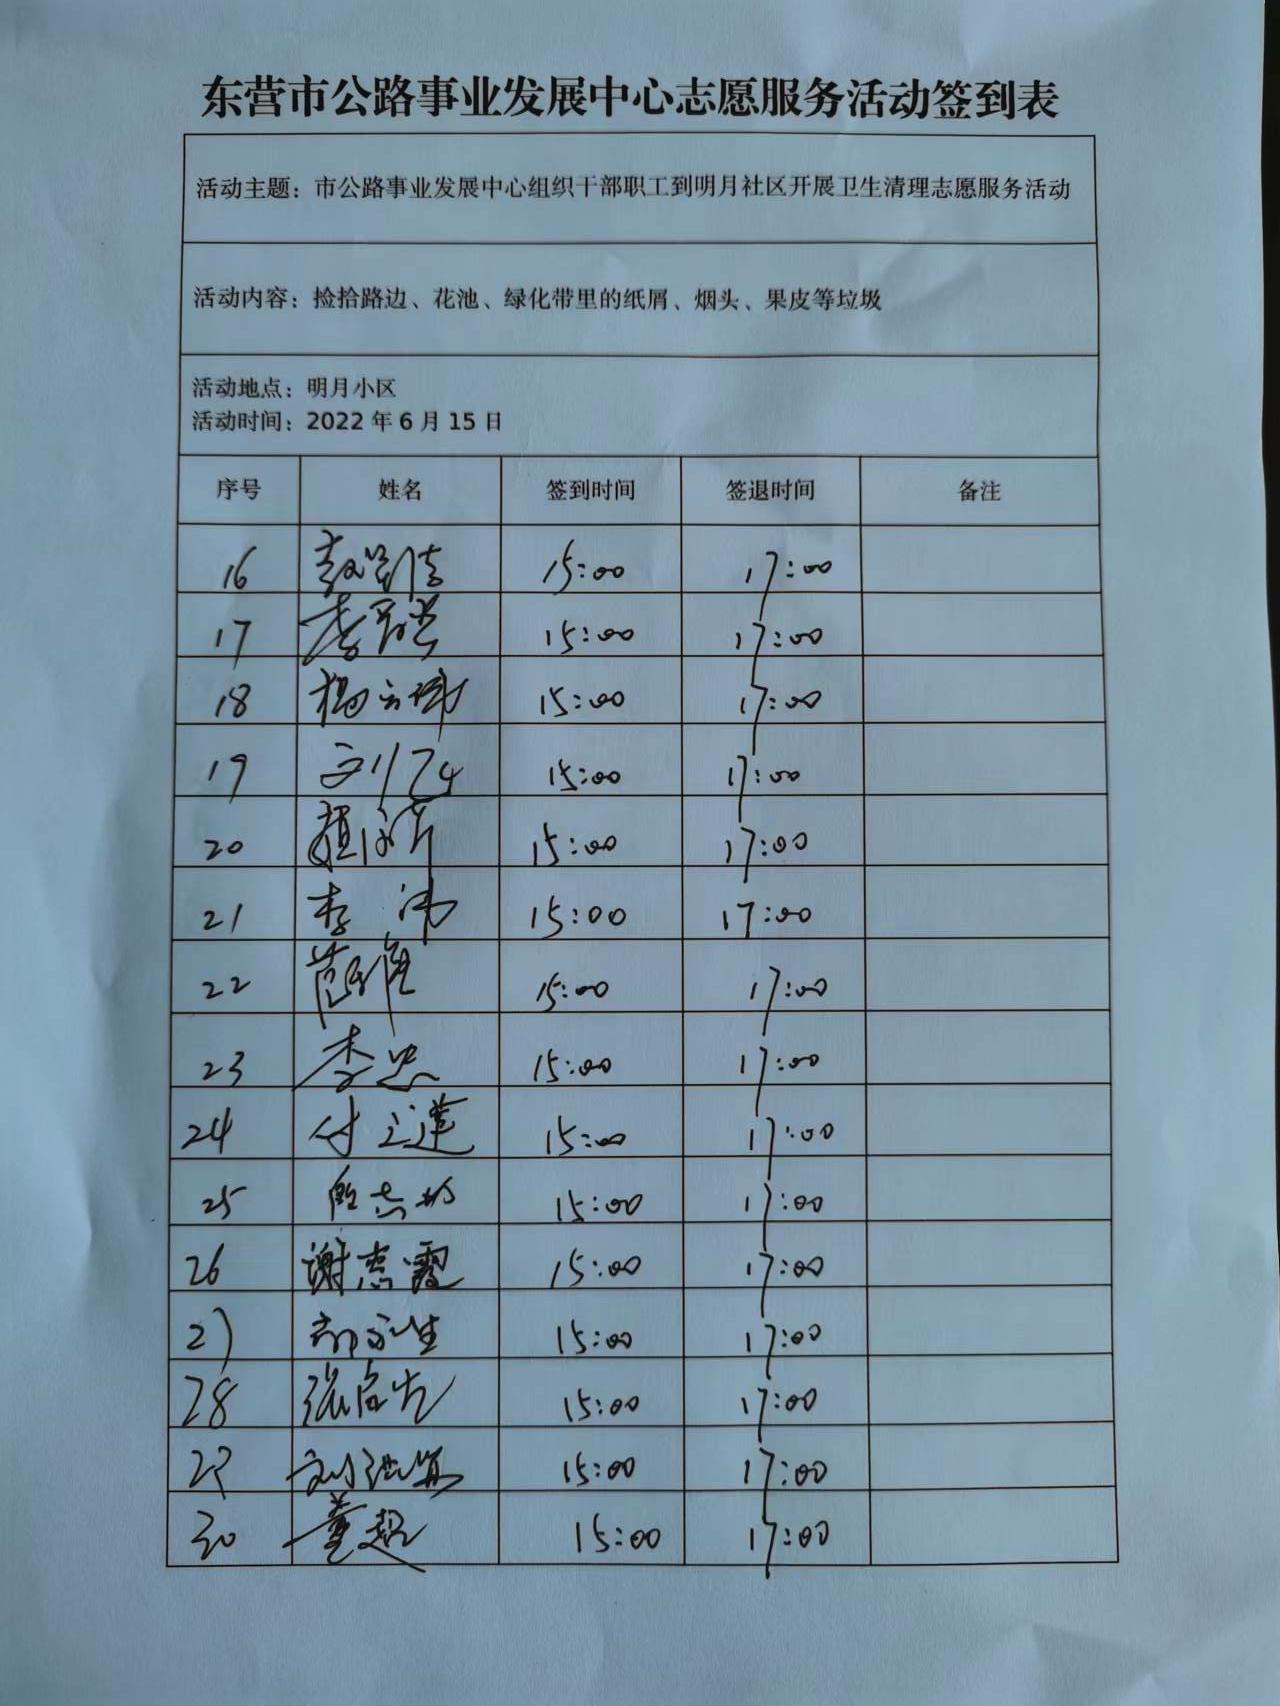 东营市公路事业发展中心志愿服务活动签到表
活动主题：市公路事业发展中心组织干部职工到明月社区开展卫生清理志愿服务活动
活动内容：捡拾路边、花池、绿化带里的纸屑、烟头、果皮等垃圾
活动地点：明月小区
活动时间：2022 年 6 月 15 日
序号 姓名 签到时间 签退时间 备注
16 15:00 17:00
17 李 15:00 17:00
18 杨 15:00 17:00
19 刘 15:00 17:00
20 15:00 17:00
21 李 15:00 17:00
22 15:00 17:00
23 李忠 15:00 17:00
24 付立莲 15:00 17:00
25 15:00 17:00
26 谢志霞 15:00 17:00
27 15:00 17:00
28 张 15:00 17:00
29 刘 15:00 17:00
30 董超 15:00 17:00